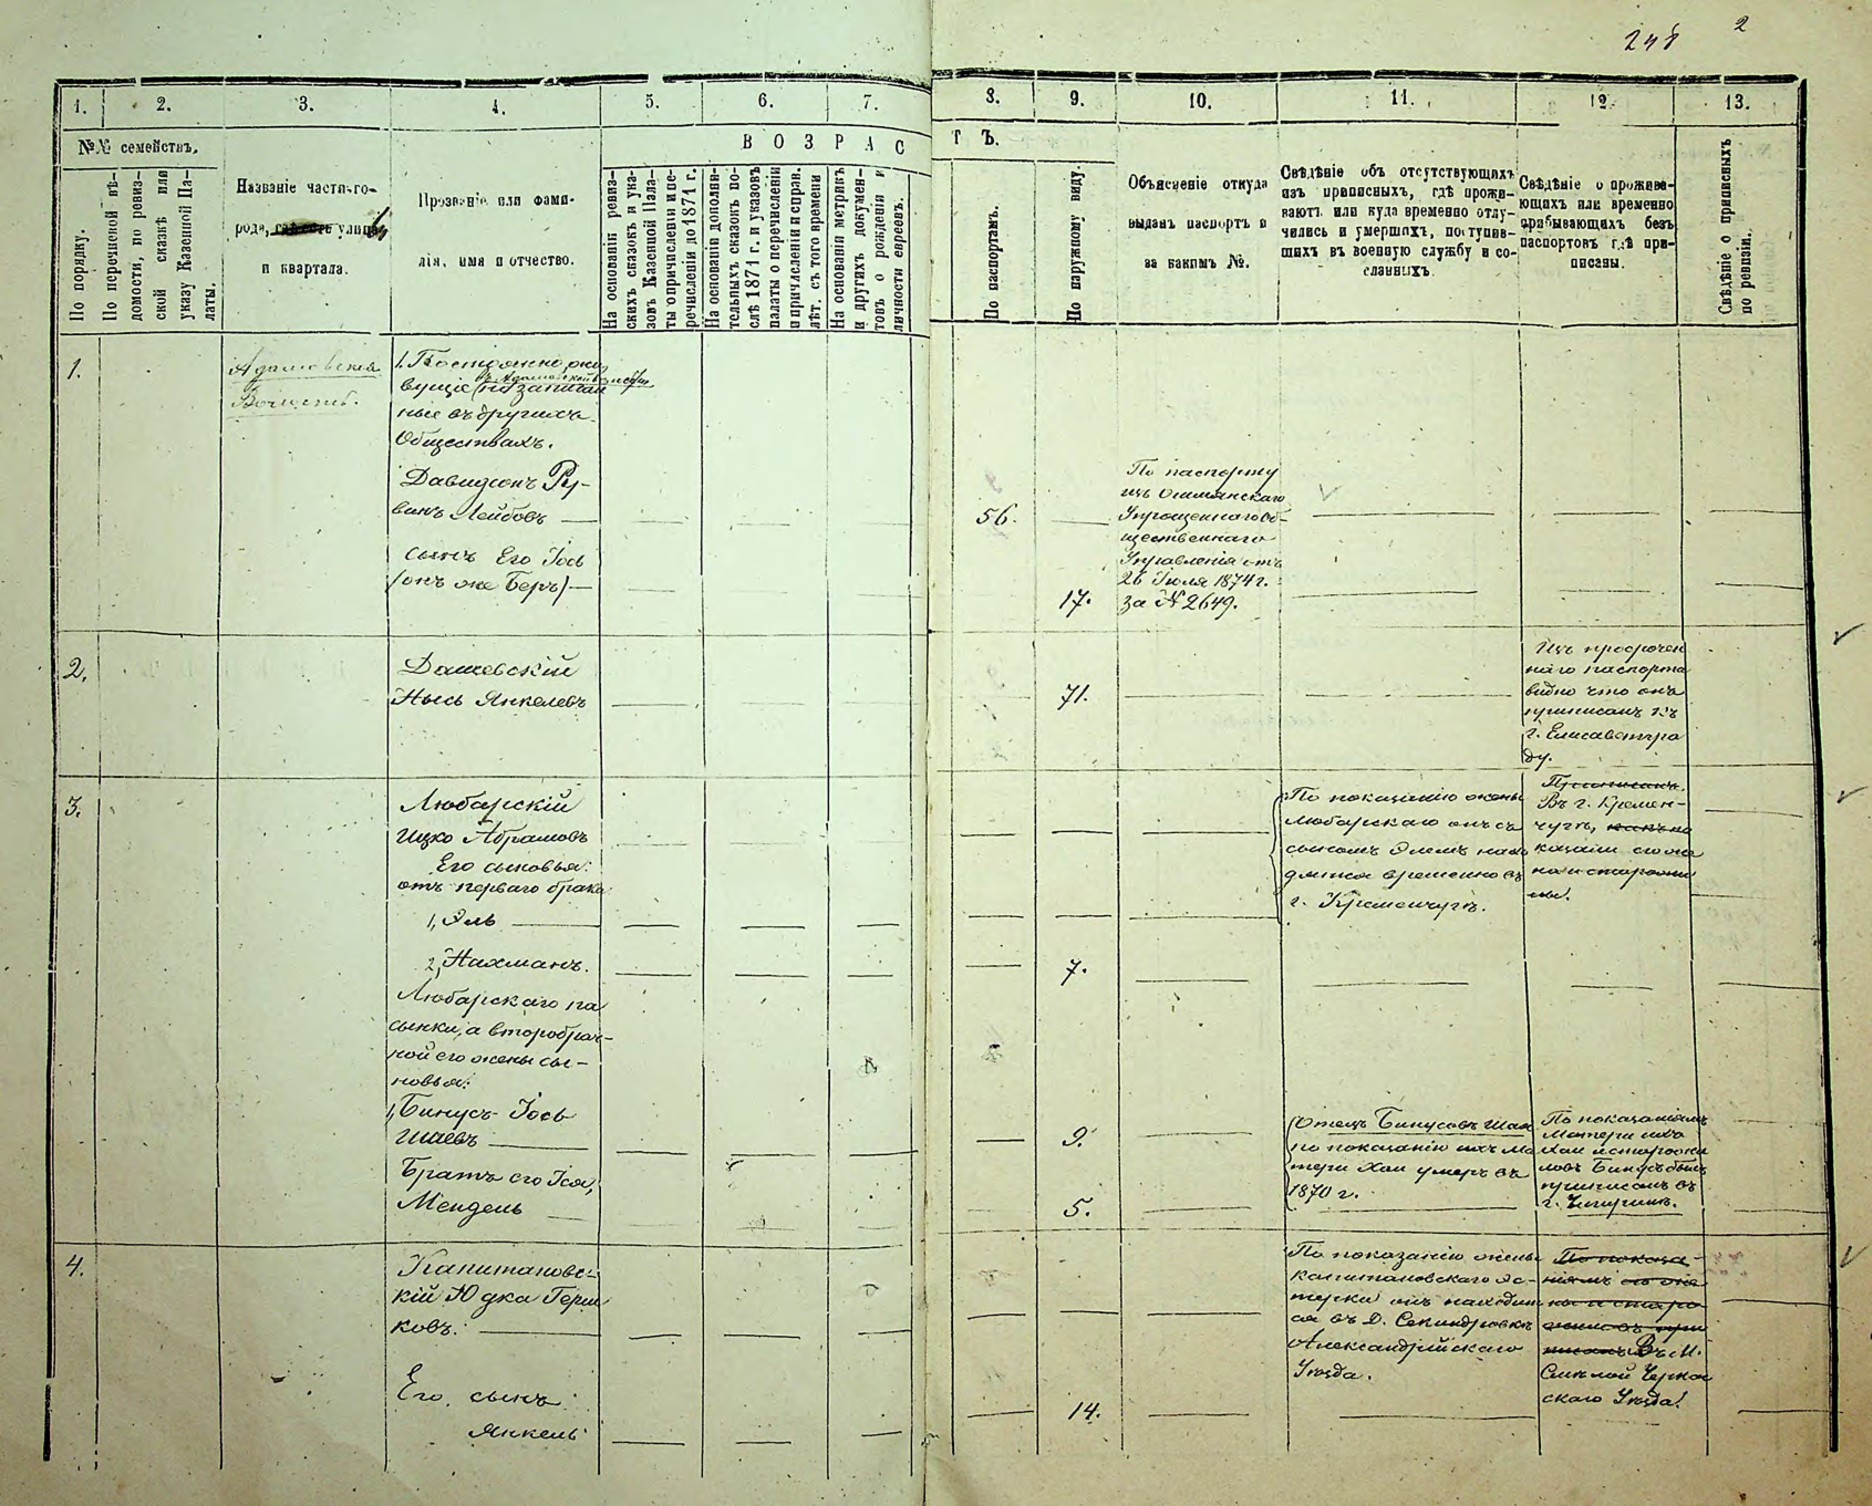 248 2
1. 2. 3. 4. 5. 6. 7. 8. 9. 10. 11. 12. 13.
№№ семействъ.
В О З Р А С Т Ъ.
По порядку.
По перечневой вѣ-
домости, по ревиз-
ской сказкѣ или
указу Казенной Па-
латы.
Названіе части го-
рода, улицы
и квартала.
Прозваніе или фами-
лія, имя и отчество.
На основаніи ревиз-
скихъ сказокъ и ука-
зовъ Казенной Пала-
ты о причисленіи и пе-
речисленіи до 1871 г.
На основаніи дополни-
тельныхъ сказокъ по-
слѣ 1871 г. и указовъ
палаты о перечисленіи
и причисленіи и справ.
лѣт. съ того времени
На основаніи метрикъ
и другихъ докумен-
товъ о рожденіи и
личности евреевъ.
По паспортамъ.
По наружному виду.
Объясненіе откуда
выданъ паспортъ и
за какимъ №.
Свѣдѣніе объ отсутствующихъ
изъ приписныхъ, гдѣ прожи-
ваютъ или куда временно отлу-
чились и умершихъ, поступив-
шихъ въ военную службу и со-
сланныхъ.
Свѣдѣніе о прожива-
ющихъ или временно
прибывающихъ безъ
паспортовъ гдѣ при-
писаны.
Свѣдѣніе о приписныхъ
по ревизіи.
1.
Адамовская
Волость.
1. Постоянно жи
вущіе
ные въ другихъ
Обществахъ.
Давидзонъ Ру-
винъ Лейбовъ
56.
По паспорту
изъ Ошмянскаго
Упрощеннаго Об-
щественнаго
Управленія отъ
26 Іюля 1874 г.
за № 2649.
сынъ Его Іось
(онъ же Беръ)
17.
2.
Дашевскій
Нысь Янкелевъ
71.
Изъ просрочен
наго паспорта
видно что онъ
приписанъ къ
г. Елисаветгра
ду.
3.
Любарскій
Ицко Абрамовъ
Его сыновья:
отъ перваго брака
1, Эль
По показанію жены
Любарскаго онъ съ
сыномъ Элемъ нахо
дится временно въ
г. Кременчугѣ.
Приписанъ.
Въ г. Кремен-
чугѣ,
2, Нахманъ.
7.
Любарскаго па
сынки, а второбрач-
ной его жены сы-
новья:
1, Бинусъ Іось
Шаевъ
9.
Отецъ Бинусовъ Шая
по показанію ихъ ма
тери Хаи умеръ въ
1870 г.
По показаніямъ
Матери ихъ
Хаи и старожи
ловъ Бинусъ былъ
приписанъ въ
г. Чигиринѣ.
Братъ его
Мендель
5.
4.
Капитановс-
кій Юдка Герш
ковъ.
По показанію жены
Капитановскаго Эс-
терки онъ находит
ся въ Д.
Александрійскаго
Уѣзда.
По показа-
ніямъ
Въ М.
Смѣлой Черка
скаго Уѣзда.
Его сынъ
Янкель
14.